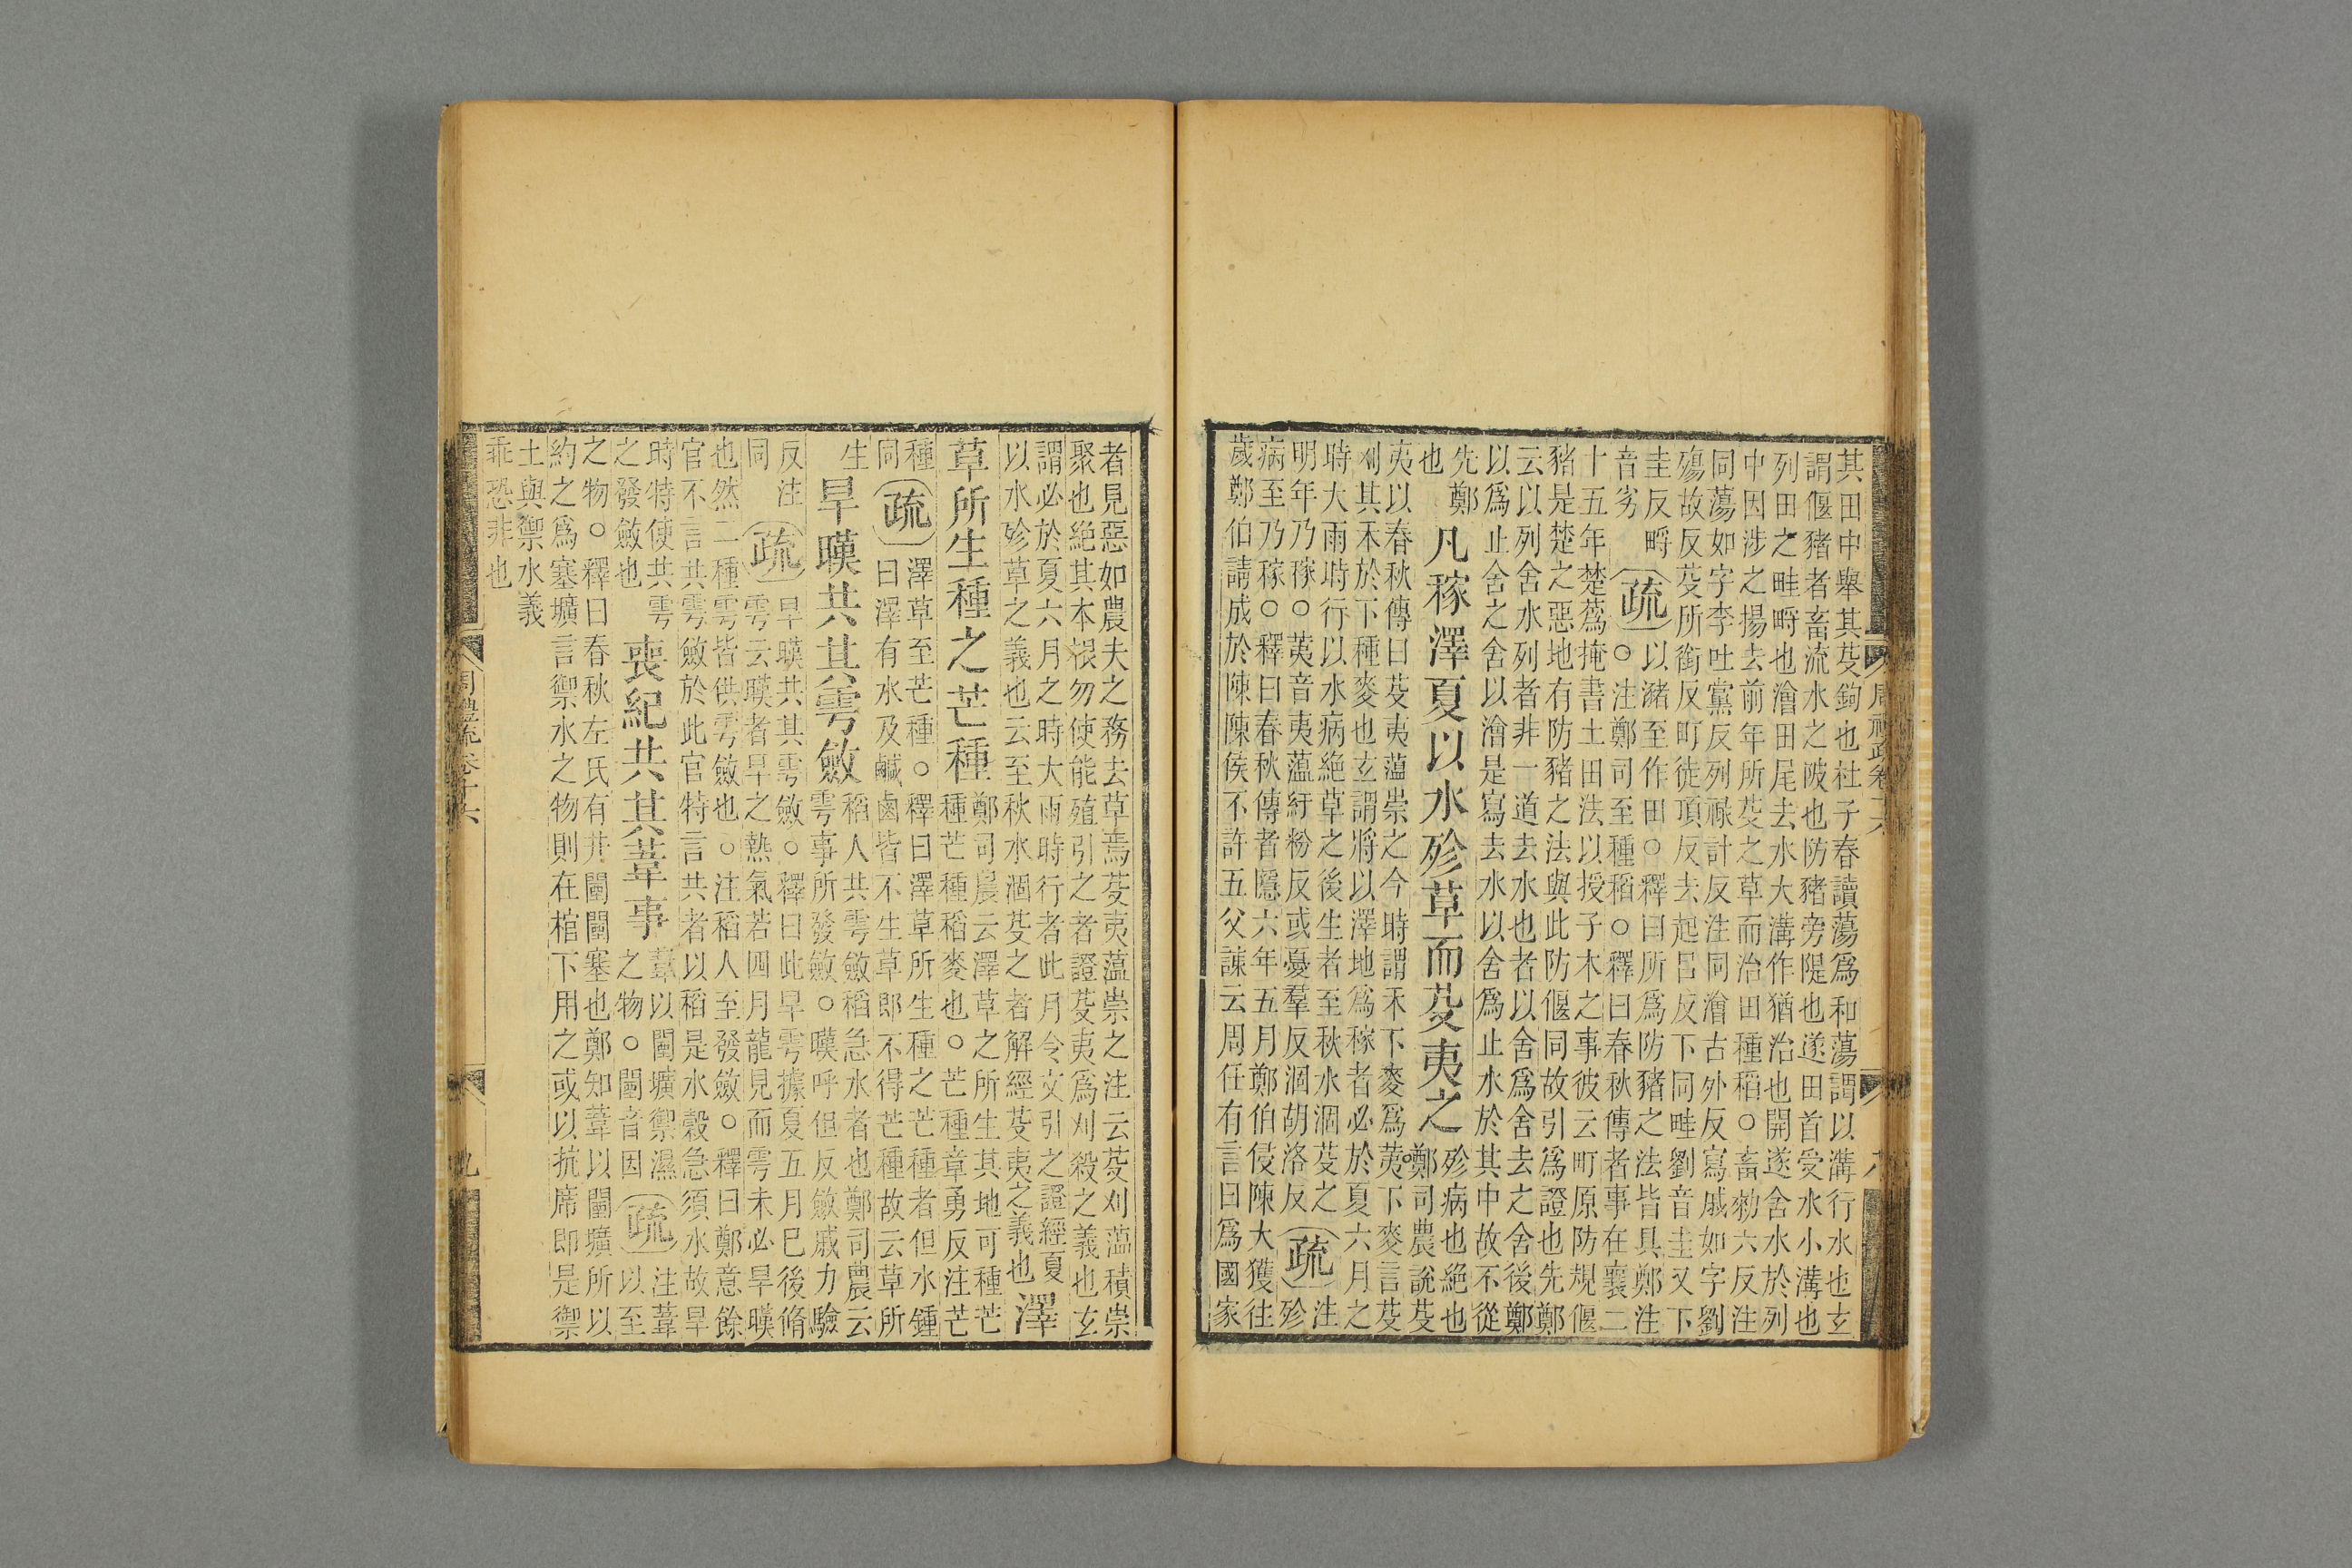 其田中舉其芟鉤也杜子春讀蕩爲和蕩謂以溝行水也玄
謂偃豬者畜流水之陂也防豬旁隄也遂田首受水小溝也
列田之畦㽟也澮田尾去水大溝作猶治也開遂舍水於列
中因涉之揚去前年所芟之草而治田種稻○畜勑六反注
同蕩如字李吐黨反列祿計反注同澮古外反寫戚如字劉
殤故反芟所銜反町徒頂反去起呂反下同畦劉音圭又下
圭反㽟
音劣
疏
以瀦至作田○釋曰所爲防豬之法皆具鄭注
○注鄭司至種稻○釋曰春秋傳者事在襄二
十五年楚蒍掩書土田法以授子木之事彼云町原防規偃
豬是楚之惡地有防豬之法與此防偃同故引爲證也先鄭
云以列舍水列者非一道去水也者以舍爲舍去之舍後鄭
以爲止舍之舍以澮是寫去水以舍爲止水於其中故不從
先鄭
也
凡稼澤夏以水殄草而芟夷之
殄病也絶也
鄭司農說芟
夷以春秋傳曰芟夷蕰崇之今時謂禾下麥爲荑下麥言芟
刈其禾於下種麥也玄謂將以澤地爲稼者必於夏六月之
時大雨時行以水病絶草之後生者至秋水涸芟之
明年乃稼○荑音夷蕰紆粉反或憂羣反涸胡洛反
疏
注
殄
病至乃稼○釋曰春秋傳者隱六年五月鄭伯侵陳大獲往
歲鄭伯請成於陳陳侯不許五父諫云周任有言曰爲國家
周禮疏卷十六
八
者見惡如農夫之務去草焉芟夷蕰崇之注云芟刈蕰積崇
聚也絶其本根勿使能殖引之者證芟夷爲刈殺之義也玄
謂必於夏六月之時大雨時行者此月令文引之證經夏
以水殄草之義也云至秋水涸芟之者解經芟夷之義也
澤
草所生種之芒種
鄭司農云澤草之所生其地可種芒
種芒種稻麥也○芒種章勇反注芒
種
同
疏
澤草至芒種○釋曰澤草所生種之芒種者但水鍾
曰澤有水及鹹鹵皆不生草即不得芒種故云草所
生
旱暵共其雩斂
稻人共雩斂稻急水者也鄭司農云
雩事所發斂○暵呼但反斂戚力驗
反注
同
疏
旱暵共其雩斂○釋曰此旱雩據夏五月巳後脩
雩云暵者旱之熱氣若四月龍見而雩未必旱暵
也然二種雩皆供雩斂也○注稻人至發斂○釋曰鄭意餘
官不言共雩斂於此官特言共者以稻是水穀急須水故旱
時特使共雩
之發斂也
喪紀共其葦事
葦以闉壙禦濕
之物○闉音因
疏
注葦
以至
之物○釋曰春秋左氏有井闉闉塞也鄭知葦以闉壙所以
約之爲塞壙言禦水之物則在棺下用之或以抗席即是禦
土與禦水義
乖恐非也
周禮疏卷十六
九